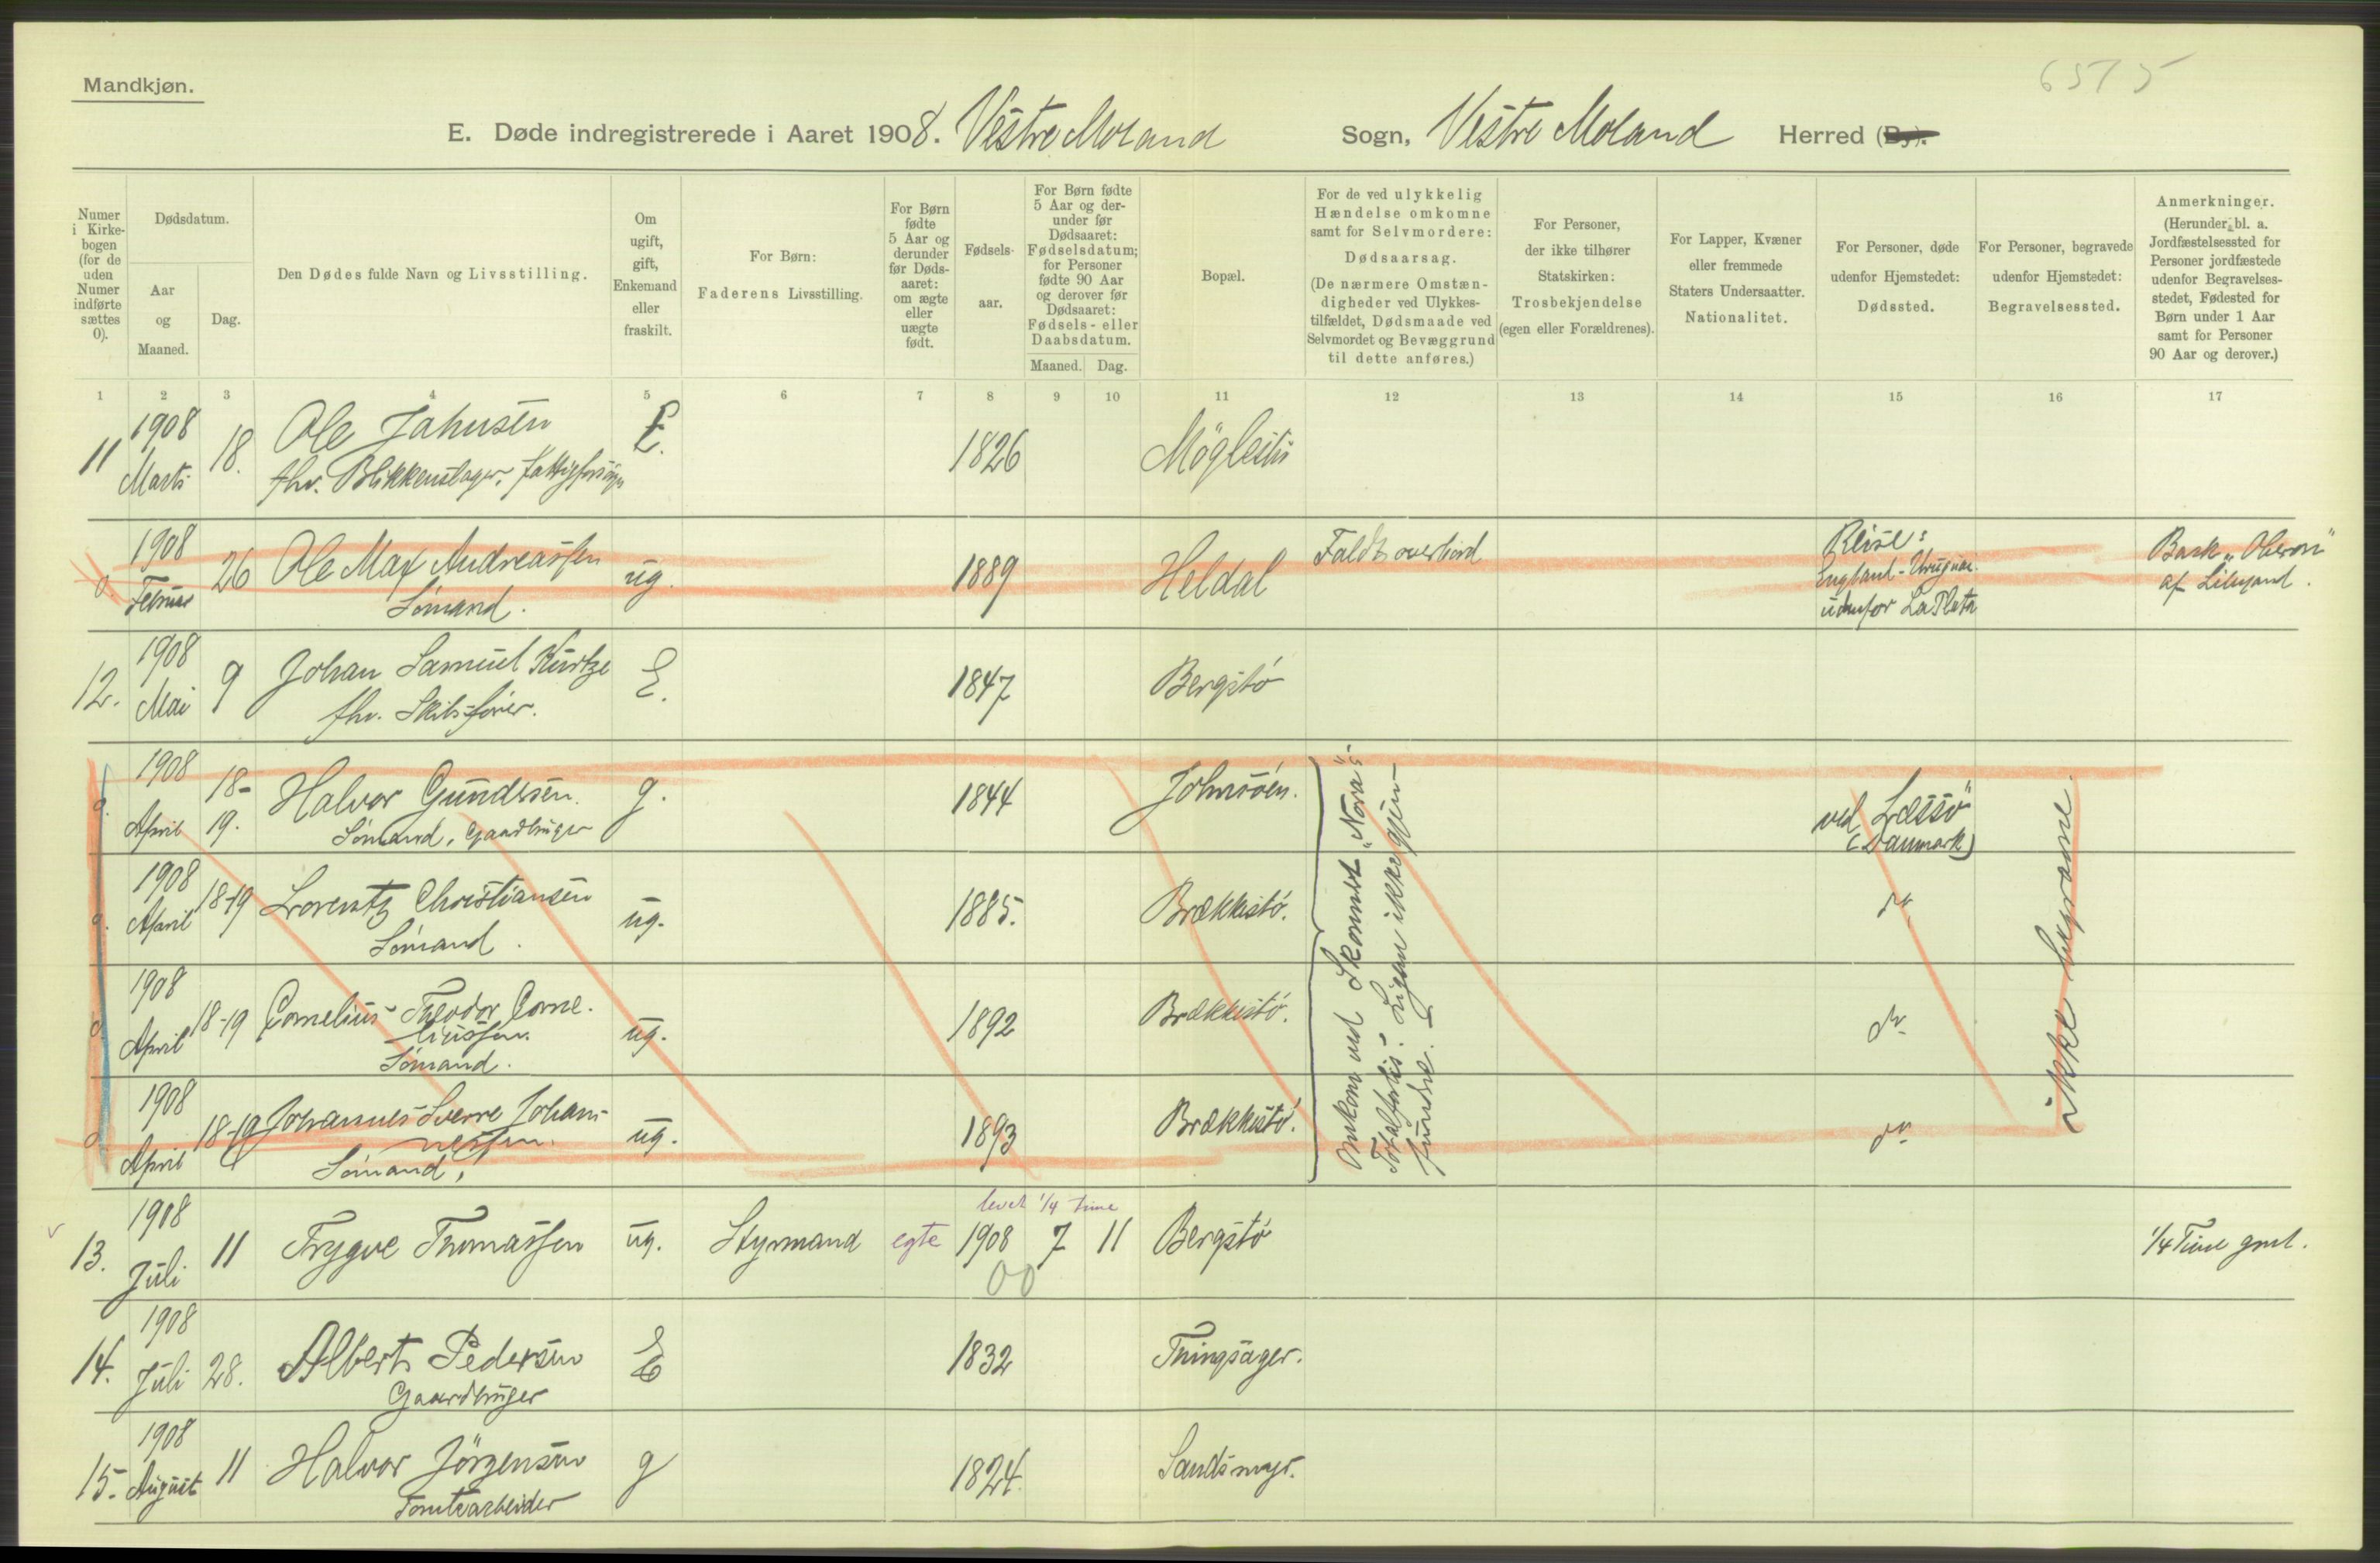 Mandkjøn.
6575
E. Døde indregistrerede i Aaret 1908. Vestre Moland Sogn, Vestre Moland Herred (By).
Numer i Kirkebogen (for de uden Numer indførte sættes 0).
Dødsdatum.
Aar og Maaned.
Dag.
Den Dødes fulde Navn og Livsstilling.
Om ugift, gift, Enkemand eller fraskilt.
For Børn:
Faderens Livsstilling.
For Børn fødte 5 Aar og derunder før Dødsaaret: om ægte eller uægte født.
Fødselsaar.
For Børn fødte 5 Aar og derunder før Dødsaaret: Fødselsdatum; for Personer fødte 90 Aar og derover før Dødsaaret: Fødsels- eller Daabsdatum.
Maaned. Dag.
Bopæl.
For de ved ulykkelig Hændelse omkomne samt for Selvmordere:
Dødsaarsag.
(De nærmere Omstændigheder ved Ulykkestilfældet, Dødsmaade ved Selvmordet og Bevæggrund til dette anføres.)
For Personer, der ikke tilhører Statskirken:
Trosbekjendelse
(egen eller Forældrenes).
For Lapper, Kvæner eller fremmede Staters Undersaatter.
Nationalitet.
For Personer, døde udenfor Hjemstedet:
Dødssted.
For Personer, begravede udenfor Hjemstedet:
Begravelsessted.
Anmerkninger.
(Herunder bl. a. Jordfæstelsessted for Personer jordfæstede udenfor Begravelsesstedet, Fødested for Børn under 1 Aar samt for Personer 90 Aar og derover.)
1 2 3 4 5 6 7 8 9 10 11 12 13 14 15 16 17
11 1908 Marts 18. Ole Jahnsen E. 1826
fhv. Blikkenslager,
0. 1908 Februar 26 Ole Max Andreassen ug. 1889 Heldal Faldt overbord Reise: Bark "Oberon"
Sømand. England - Uruguai. af Lillesand.
udenfor La Plata
12. 1908 Mai 9 Johan Samuel Kurtze E. 1847 Bergstø
fhv. Skibsfører.
0. 1908 April 18-19. Halvor Gundersen. g. 1844 Johnsøen. ved Læssø
Sømand, Gaardbruger (Danmark)
0. 1908 April 18-19 Lorentz Christiansen ug. 1885. Brækkestø. do
Sømand.
0. 1908 April 18-19 Cornelius Theodor Corneliussen ug. 1892 Brækkestø. do
Sømand.
0. 1908 April 18-19 Johannes Sverre Johannessen. ug. 1893 Brækkestø. do
Sømand.
Omkom ved Skonnert "Nora"s
Totalforlis. Ligene ikke gjenfundne.
ikke begravne.
levet 1/4 Time
13. 1908 Juli 11 Trygve Thomassen ug. Styrmand egte 1908 7 11 Bergstø 1/4 Time gml.
00
14. 1908 Juli 28. Albert Pedersen E 1832 Tingsager.
Gaardbruger
15. 1908 August 11 Halvor Jörgensen g 1824. Sandsmyr.
Tomtearbeider